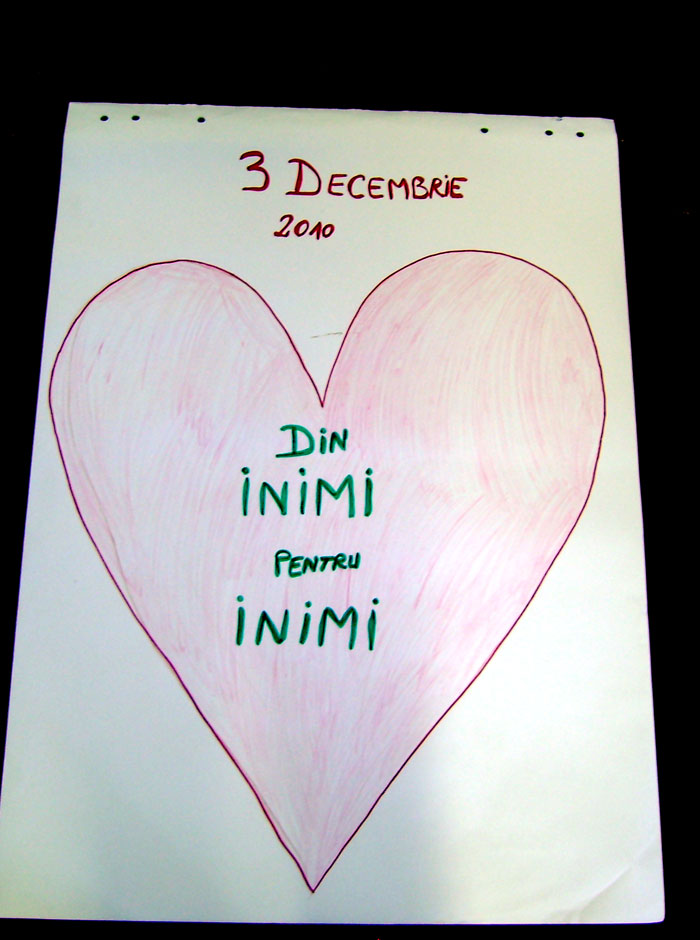 3 DECEMBRiE
2010
DiN
iNiMi
PENTRU
iNiMi